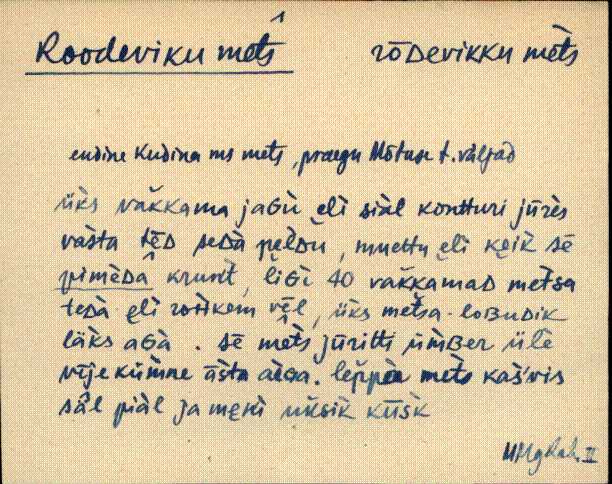 Roodeviku mets̀ rōDevikku mèts
endine Kudina ms mets, praegu Mõtuse t. väljad
üks vakkama jaGù ęli siàl kontturi jūrès
vasta tēD sedà peldu, muettu ęli kęik sē
pimeDà krunt, liGi 40 vakkamaD metsa
tedà ęli rohkem vēl, üks metsa-loBudik
läks aGà. sē mèts jūritti ümBer ülè
vījekümne āsta aèGa. leppa mets kašvis
sǟl piàl ja męni üksik kūsk